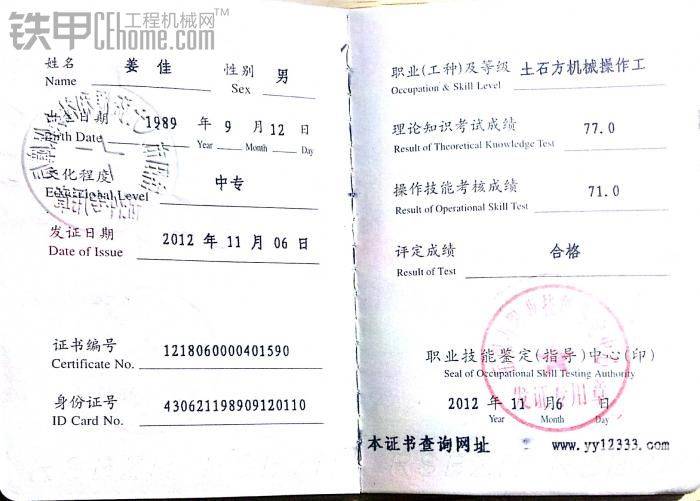 铁甲工程机械网™
CEhome.com
姓名 姜 佳 性别 男
Name Sex
出生日期 1989 年 9 月 12 日
Birth Date Year Month Day
文化程度 中专
Educational Level
发证日期 2012 年 11 月 06 日
Date of Issue
证书编号 1218060000401590
Certificate No.
身份证号 430621198909120110
ID Card No.
职业(工种)及等级 土石方机械操作工
Occupation & Skill Level
理论知识考试成绩 77.0
Result of Theoretical Knowledge Test
操作技能考核成绩 71.0
Result of Operational Skill Test
评定成绩 合格
Result of Test
职业技能鉴定(指导)中心(印)
Seal of Occupational Skill Testing Authority
发证专用章
2012 年 11 月6 日
Year Month Day
本证书查询网址 www.yy12333.com